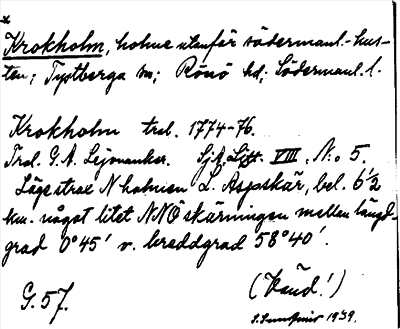 Krokholm, holme utanför södermanl.-kus-
ten; Tystberga sn; Rönö hd; Södermanl. l.
Krokholm trol. 1774-76.
Trol. G. A. Lejonanker. Sjk. Litt. VIII, N:o 5.
Läge strax N holmen L. Aspskär, bel. 6 1/2
km. något litet NNÖ skärningen mellan längd-
grad 0°45' v. breddgrad 58°40'.
G. 57.
(Känd!)
1939.